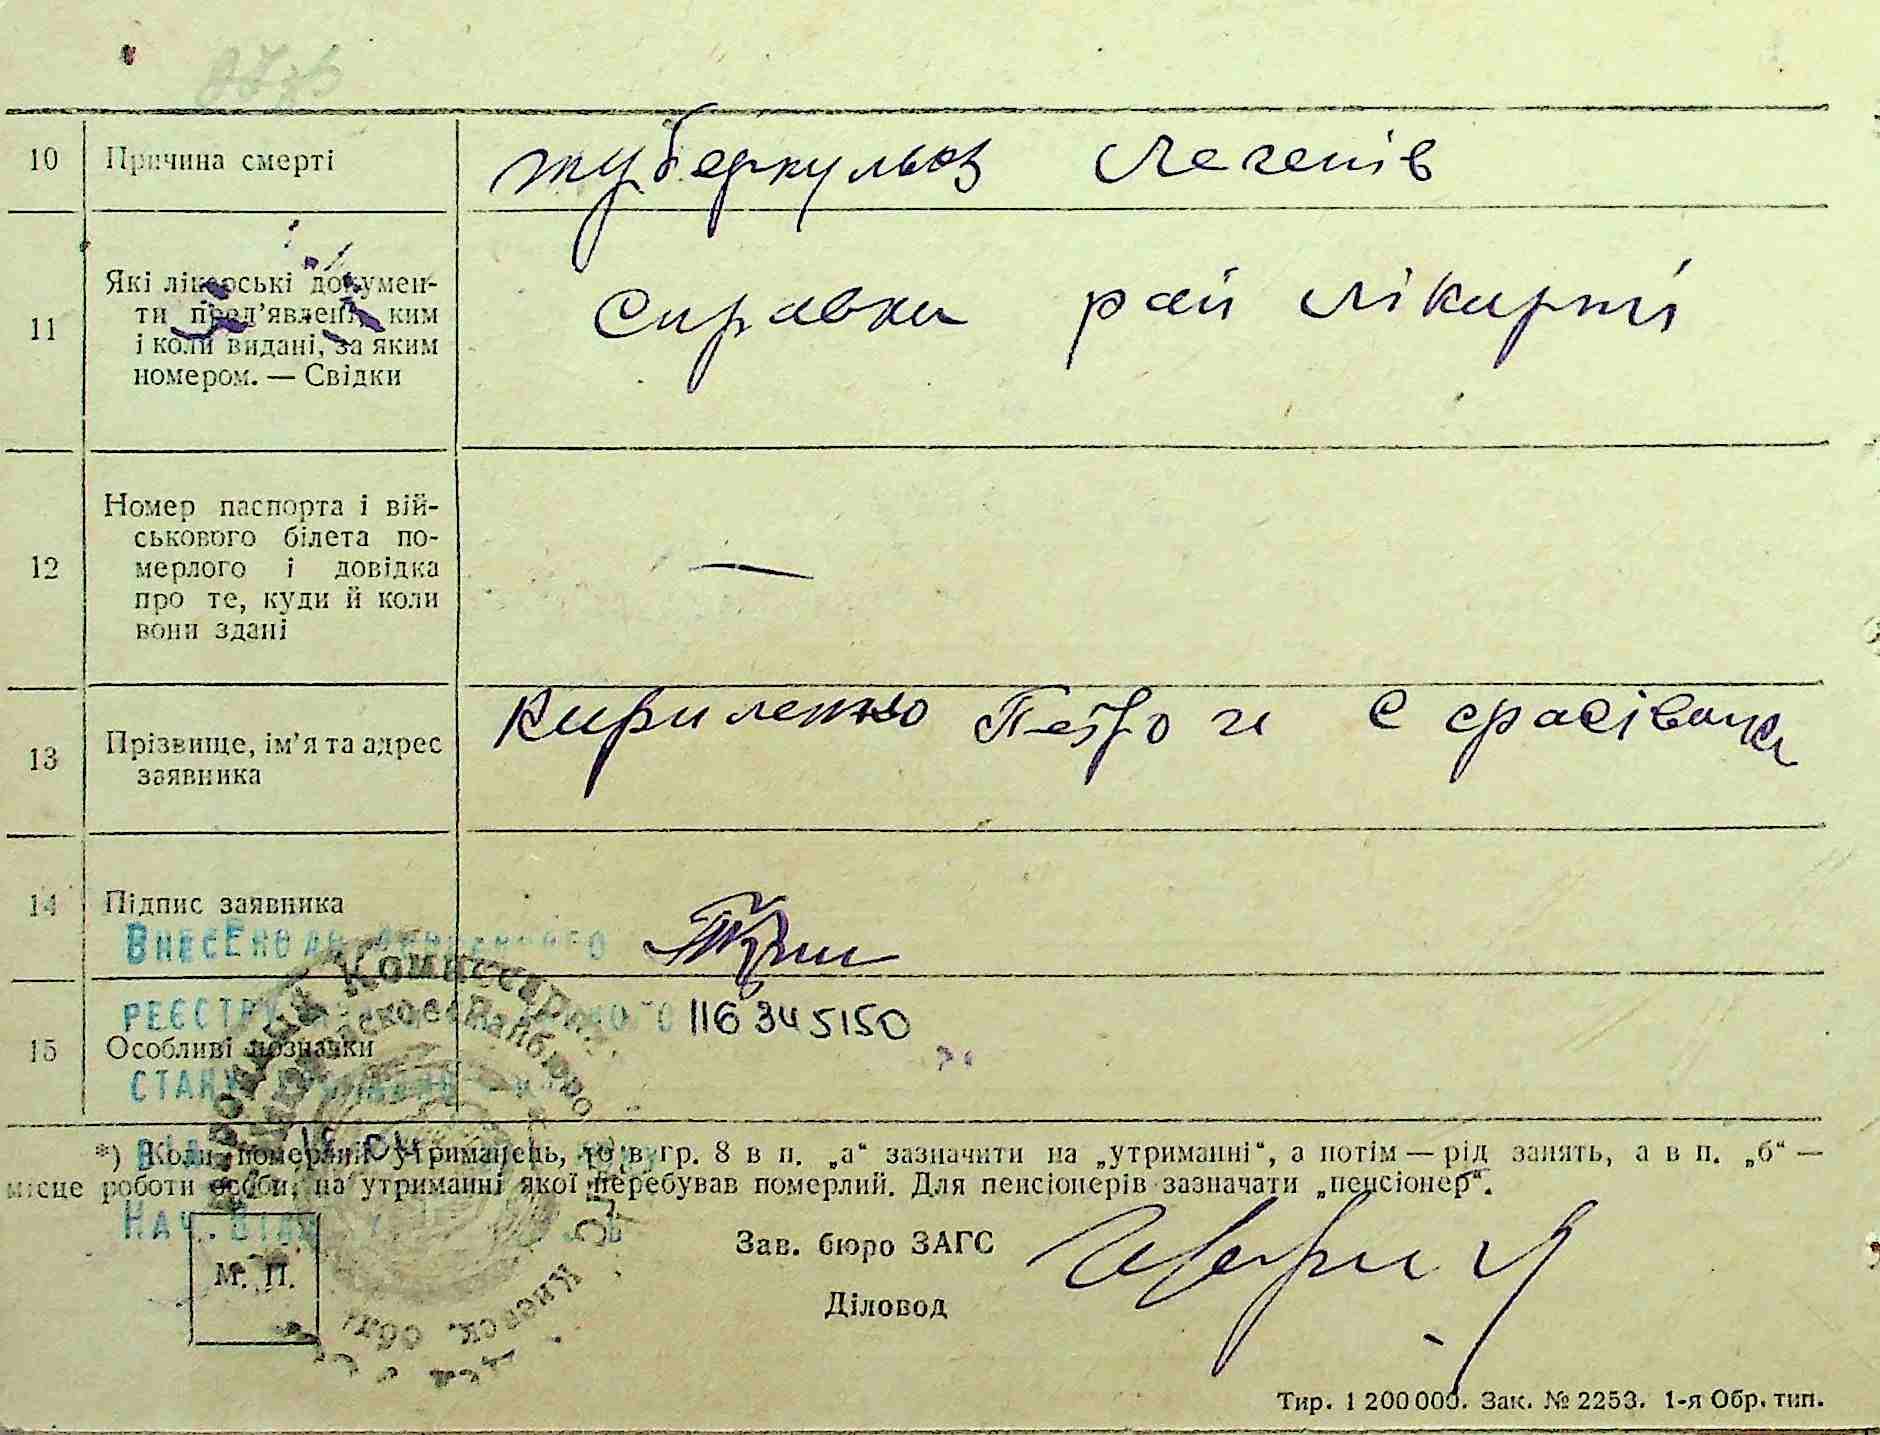 10 Причина смерті туберкульоз легенів
11 Які лікарські докумен-
ти пред'явлені, ким
і коли видані, за яким
номером. — Свідки
справка рай лікарні
12 Номер паспорта і вій-
ськового білета по-
мерлого і довідка
про те, куди й коли
вони здані
—
13 Прізвище, ім'я та адрес
заявника
Кириленко Петро и с фасівочка
14 Підпис заявника
Внесено до державного
РЕЄСТРУ 116345150
15 Особливі позначки
СТАНУ громадян
*) Коли померлий утриманець, то в гр. 8 в п. „а“ зазначити на „утриманні“, а потім — рід занять, а в п. „б“ —
місце роботи особи, на утриманні якої перебував померлий. Для пенсіонерів зазначати „пенсіонер“.
Нач. відділу
М. П.
Зав. бюро ЗАГС
Діловод
Киевск. обл.
Тир. 1 200 000. Зак. № 2253. 1-я Обр. тип.